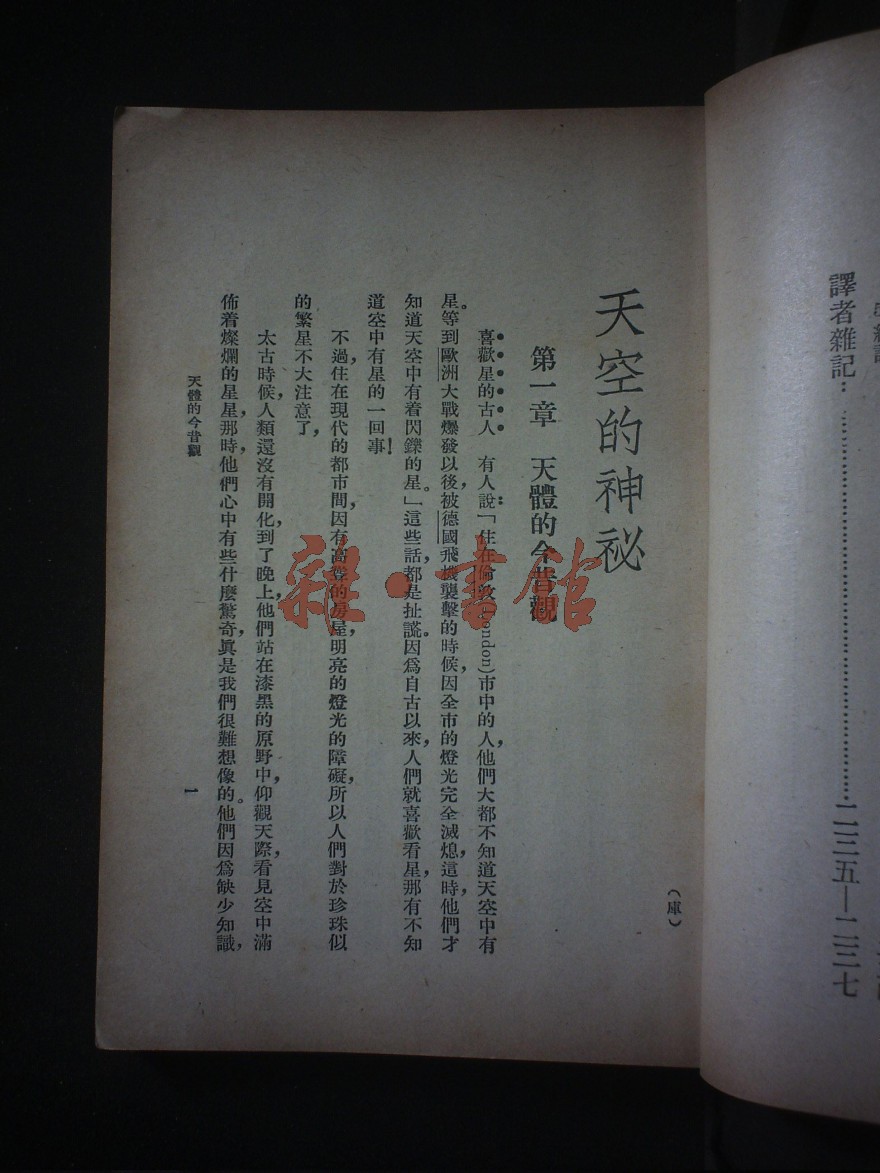 譯者雜記：……二三五—二三七
（庫）
天空的神祕
第一章　天體的今昔觀
喜歡星的古人　有人說：「住在倫敦(London)市中的人，他們大都不知道天空中有
星。等到歐洲大戰爆發以後，被德國飛機襲擊的時候，因全市的燈光完全滅熄，這時，他們才
知道天空中有着閃鑠的星。」這些話，都是扯謊。因爲自古以來，人們就喜歡看星，那有不知
道空中有星的一回事！
不過，住在現代的都市間，因有高聳的房屋，明亮的燈光的障礙，所以人們對於珍珠似
的繁星不大注意了，
太古時候，人類還沒有開化，到了晚上，他們站在漆黑的原野中，仰觀天際，看見空中滿
佈着燦爛的星星，那時，他們心中有些什麼驚奇，眞是我們很難想像的。他們因爲缺少知識，
天體的今昔觀
一
雜·書館